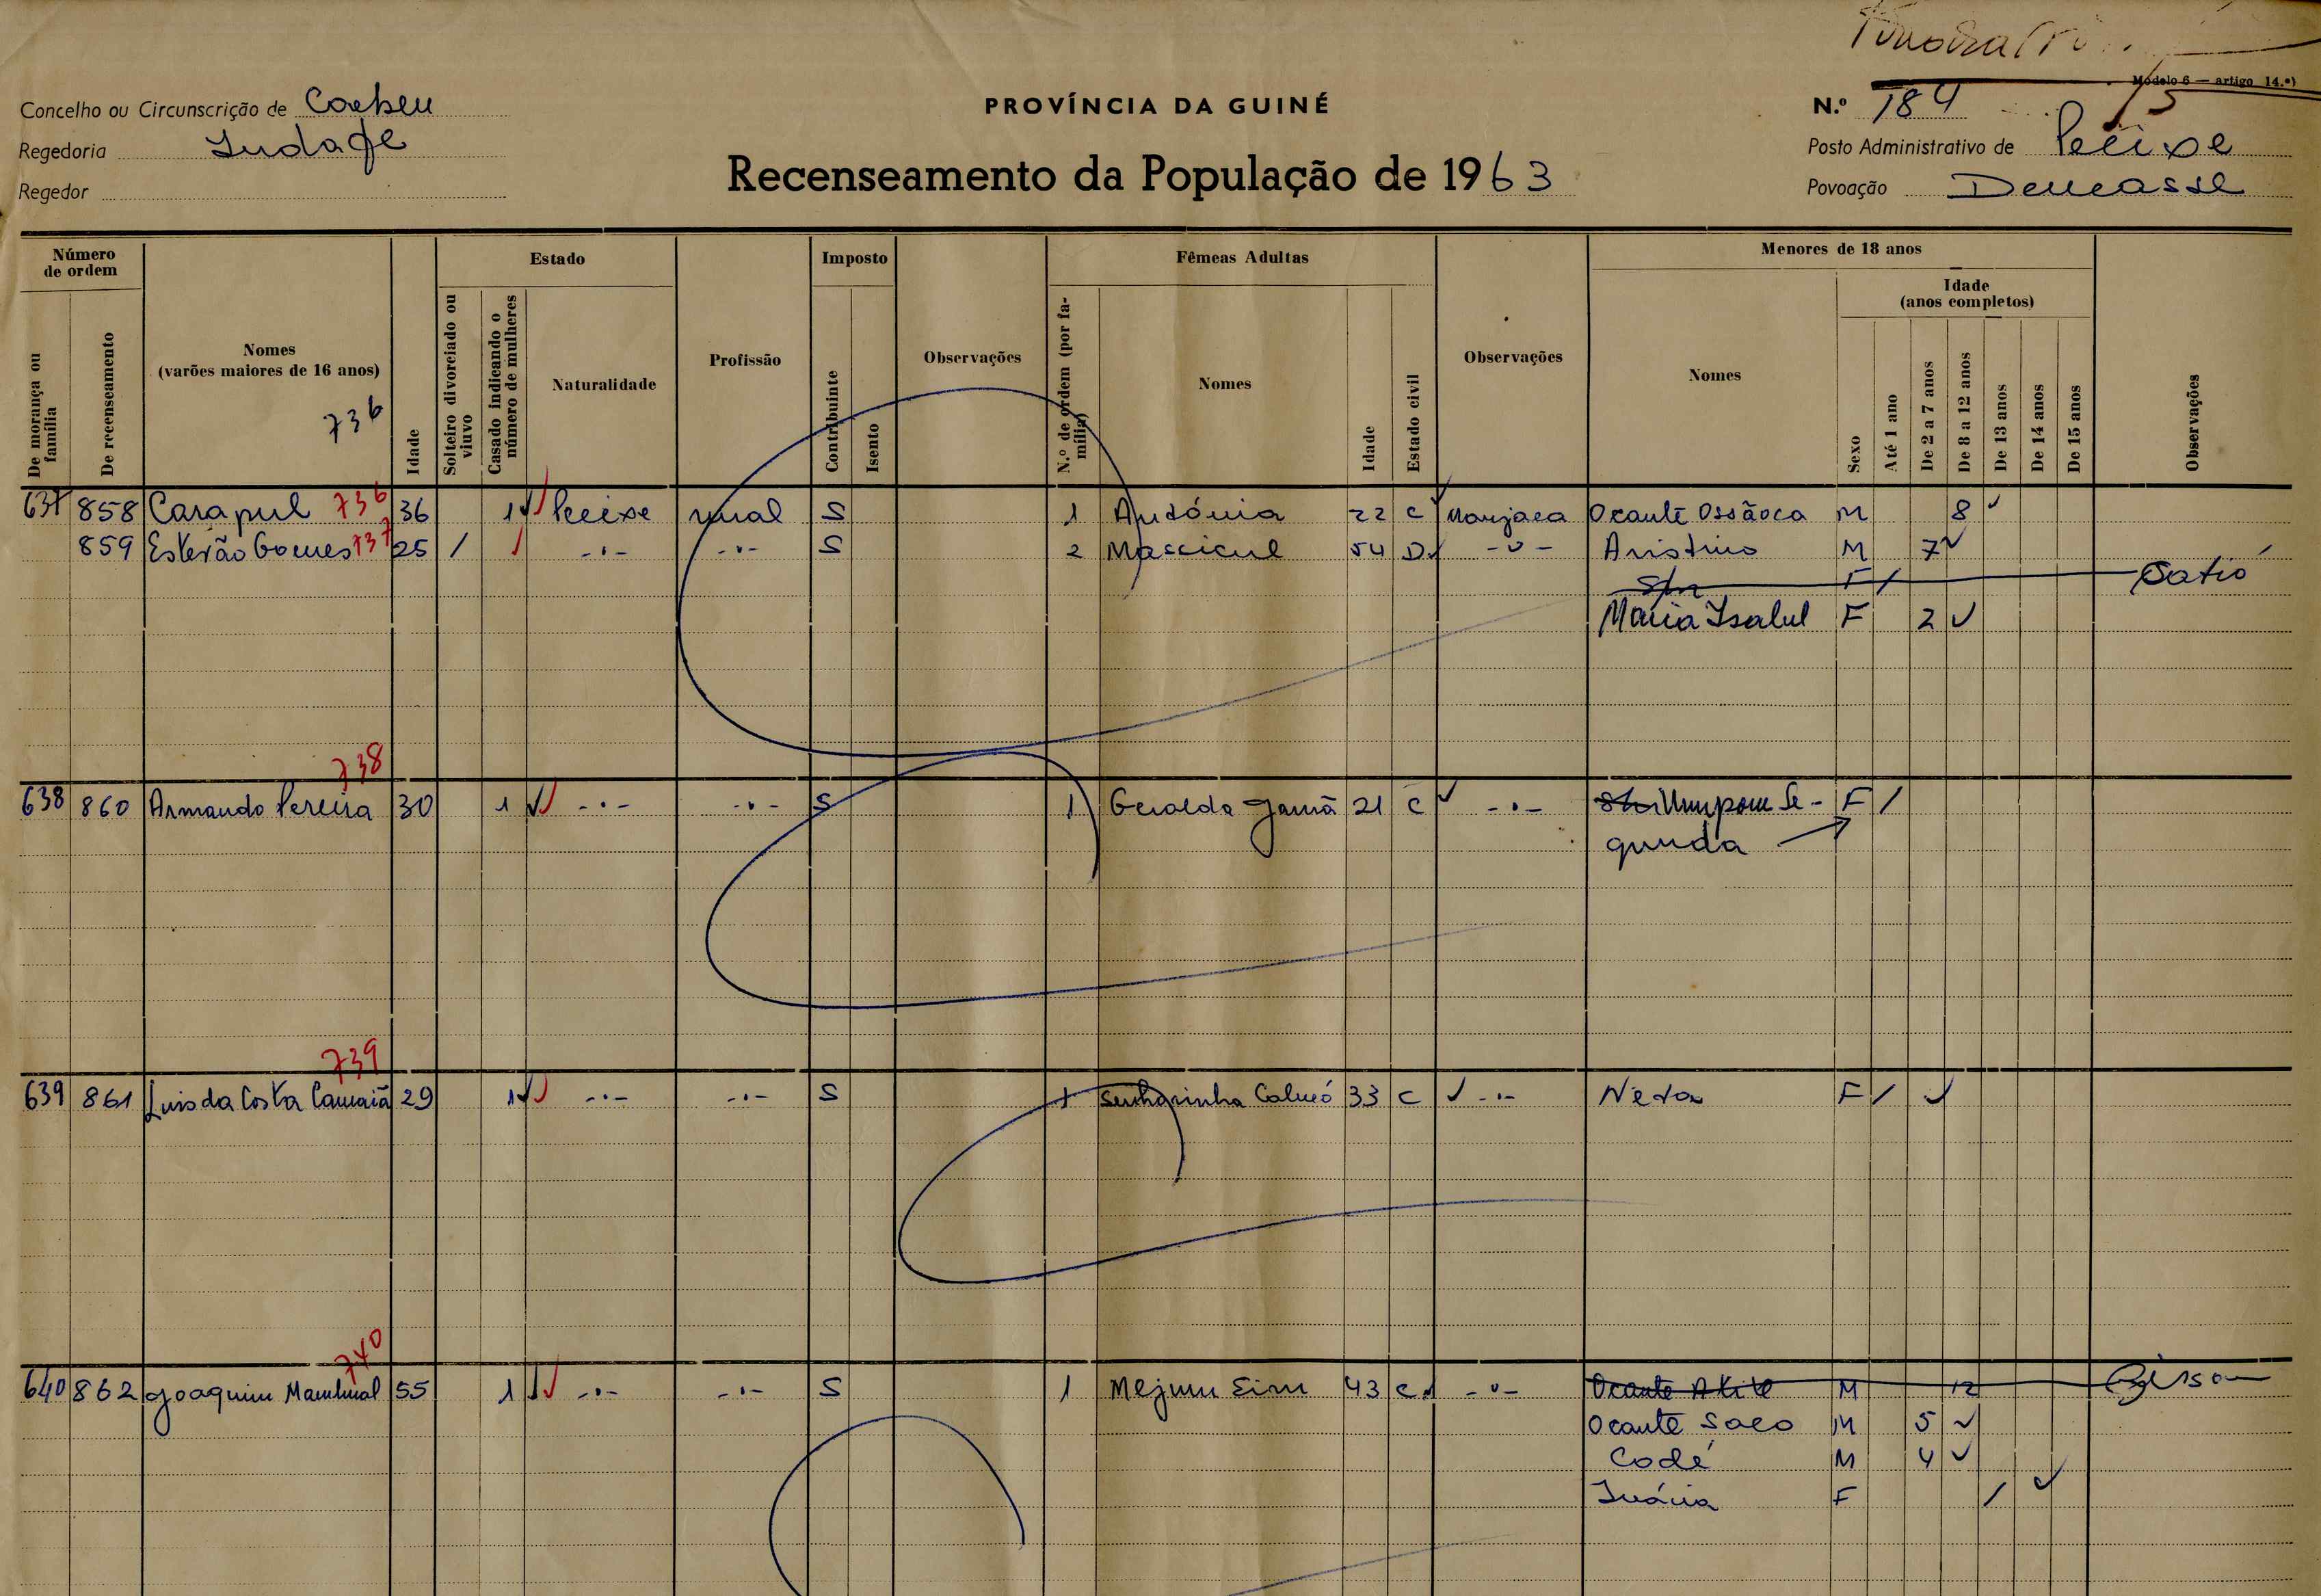 Modelo 6 — artigo 14.º)
Concelho ou Circunscrição de
PROVÍNCIA DA GUINÉ
N.º 184
Regedoria
Posto Administrativo de
Regedor
Recenseamento da População de 1963
Povoação
Número de ordem
Estado
Imposto
Fêmeas Adultas
Menores de 18 anos
Idade (anos completos)
De morança ou família
De recenseamento
Nomes (varões maiores de 16 anos)
736
Idade
Solteiro divorciado ou viuvo
Casado indicando o número de mulheres
Naturalidade
Profissão
Contribuinte
Isento
Observações
N.º de ordem (por família)
Nomes
Idade
Estado civil
Observações
Nomes
Sexo
Até 1 ano
De 2 a 7 anos
De 8 a 12 anos
De 13 anos
De 14 anos
De 15 anos
Observações
637 858 Carapul 736 36 1 Pecixe rural S 1 Antónia 22 C Manjaca Ocante M 8
859 Estevão Gomes 737 25 / -·- -·- S 2 54 D -·- M 7
F /
Maria Isabel F 2
738
638 860 Armando Pereira 30 1 -·- -·- S 1 Geralda 21 C -·- Se- F /
gunda
739
639 861 Luis da Costa 29 1 -·- -·- S 1 Senhorinha 33 C -·- F /
740
640 862 Joaquim 55 1 -·- -·- S 1 43 C -·- Ocante M 12
Ocante M 5
Codé M 4
F /